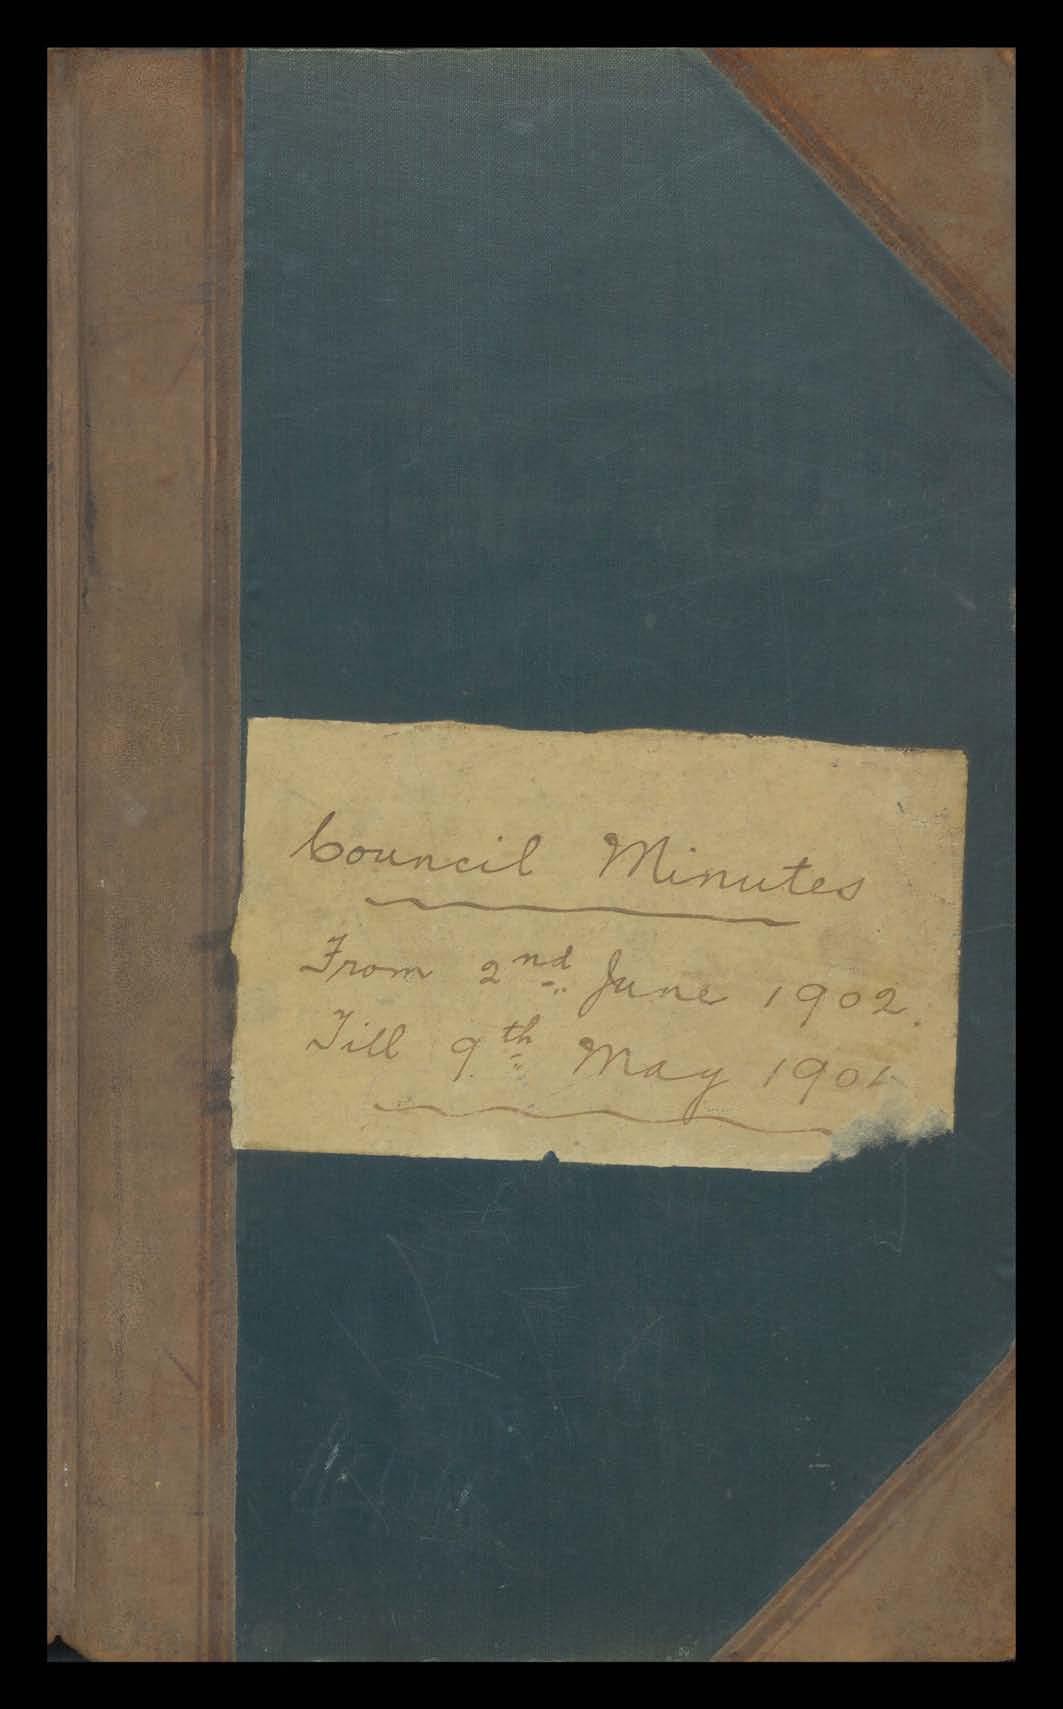 Council Minutes
From 2nd June 1902.
Till 9th May